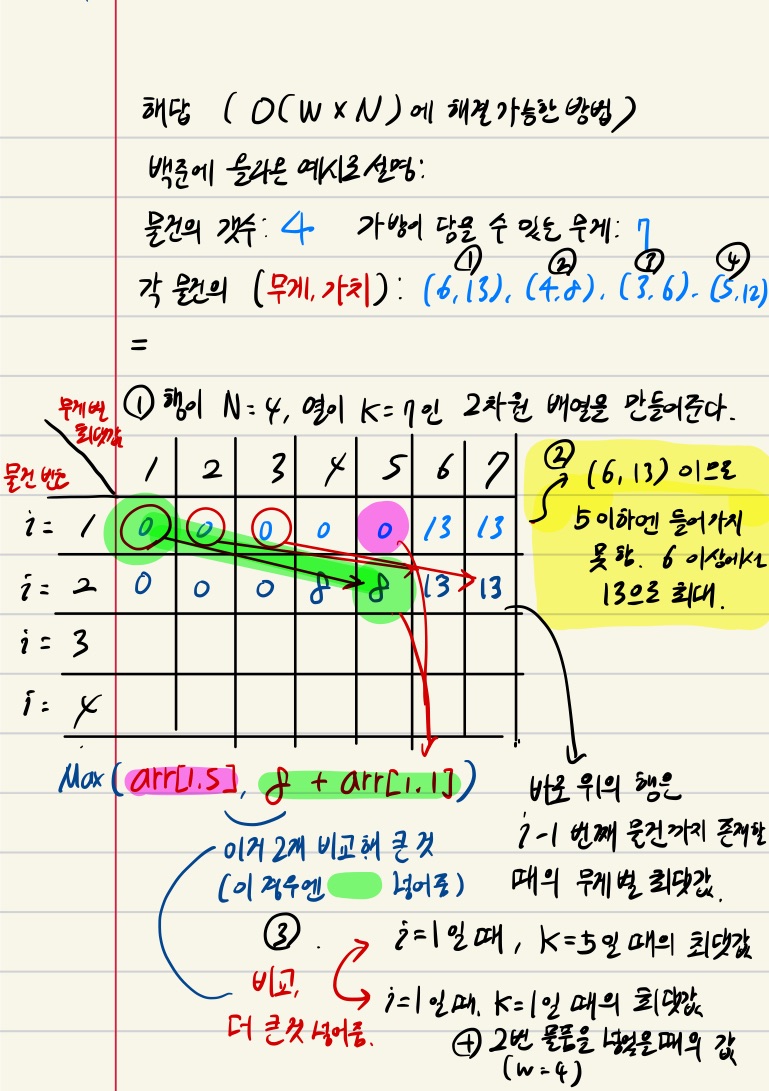 해답 ( O(W × N) 에 해결 가능한 방법)
백준에 올라온 예시로 설명:
물건의 갯수: 4 가방이 담을 수 있는 무게: 7
① ② ③ ④
각 물건의 (무게, 가치): (6,13), (4,8), (3,6), (5,12)
=
① 행이 N=4, 열이 K=7인 2차원 배열을 만들어준다.
무게별
최댓값
물건 번호
1 2 3 4 5 6 7
i= 1 0 0 0 0 0 13 13
i= 2 0 0 0 8 8 13 13
i= 3
i= 4
② (6,13) 이므로
5 이하엔 들어가지
못함. 6 이상에서
13으로 최대.
Max( arr[1.5], 8 + arr[1.1] )
이거 2개 비교해 큰 것
(이 경우엔 넣어줌)
바로 위의 행은
i-1 번째 물건까지 존재할
때의 무게별 최댓값.
③.
비교,
더 큰것 넣어줌.
i=1일 때, K=5일 때의 최댓값
i=1일 때, K=1일 때의 최댓값
⊕ 2번 물품을 넣었을때의 값
(w=4)